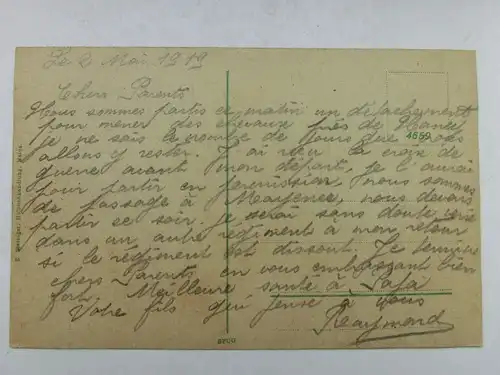 Le 2 Mai 1919
Chers Parents
Nous sommes partis ce matin un détachement
pour mener des chevaux près de
4659
je ne sais le nombre de jours que nous
allons y rester. J'ai reçu la croix de
guerre avant mon départ, je l'aurai
pour partir en permission, nous sommes
de passage à Mayence, nous devons
partir ce soir. je serai sans doute versé
dans un autre régiment à mon retour
si le régiment est dissout. Je termine
chers Parents en vous embrassant bien
fort. Meilleure santé à Papa
Votre fils qui pense à vous
Raymond